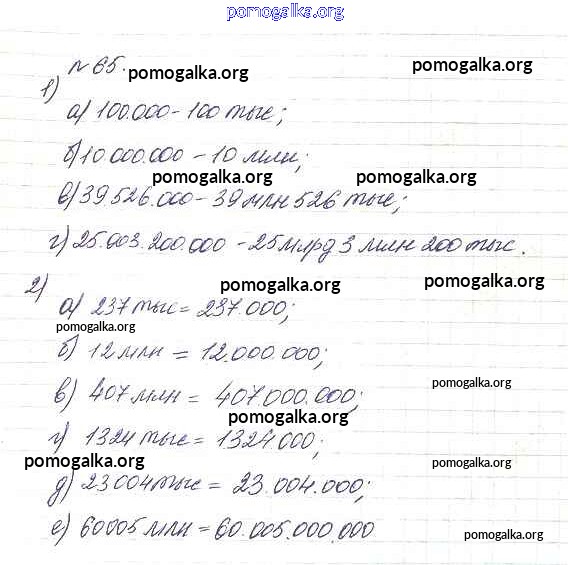 pomogalka.org
№ 65.
pomogalka.org
pomogalka.org
1)
а) 100.000 - 100 тыс;
б) 10 000.000 - 10 млн;
pomogalka.org
pomogalka.org
в) 39 526.000 - 39 млн 526 тыс;
г) 25.003.200.000 - 25 млрд 3 млн 200 тыс.
2)
pomogalka.org
pomogalka.org
а) 237 тыс = 237.000;
pomogalka.org
б) 12 млн = 12.000.000;
pomogalka.org
в) 407 млн = 407.000.000;
pomogalka.org
г) 1324 тыс = 1324000;
pomogalka.org
pomogalka.org
д) 23 004 тыс = 23.004.000;
е) 60005 млн = 60.005.000.000
pomogalka.org